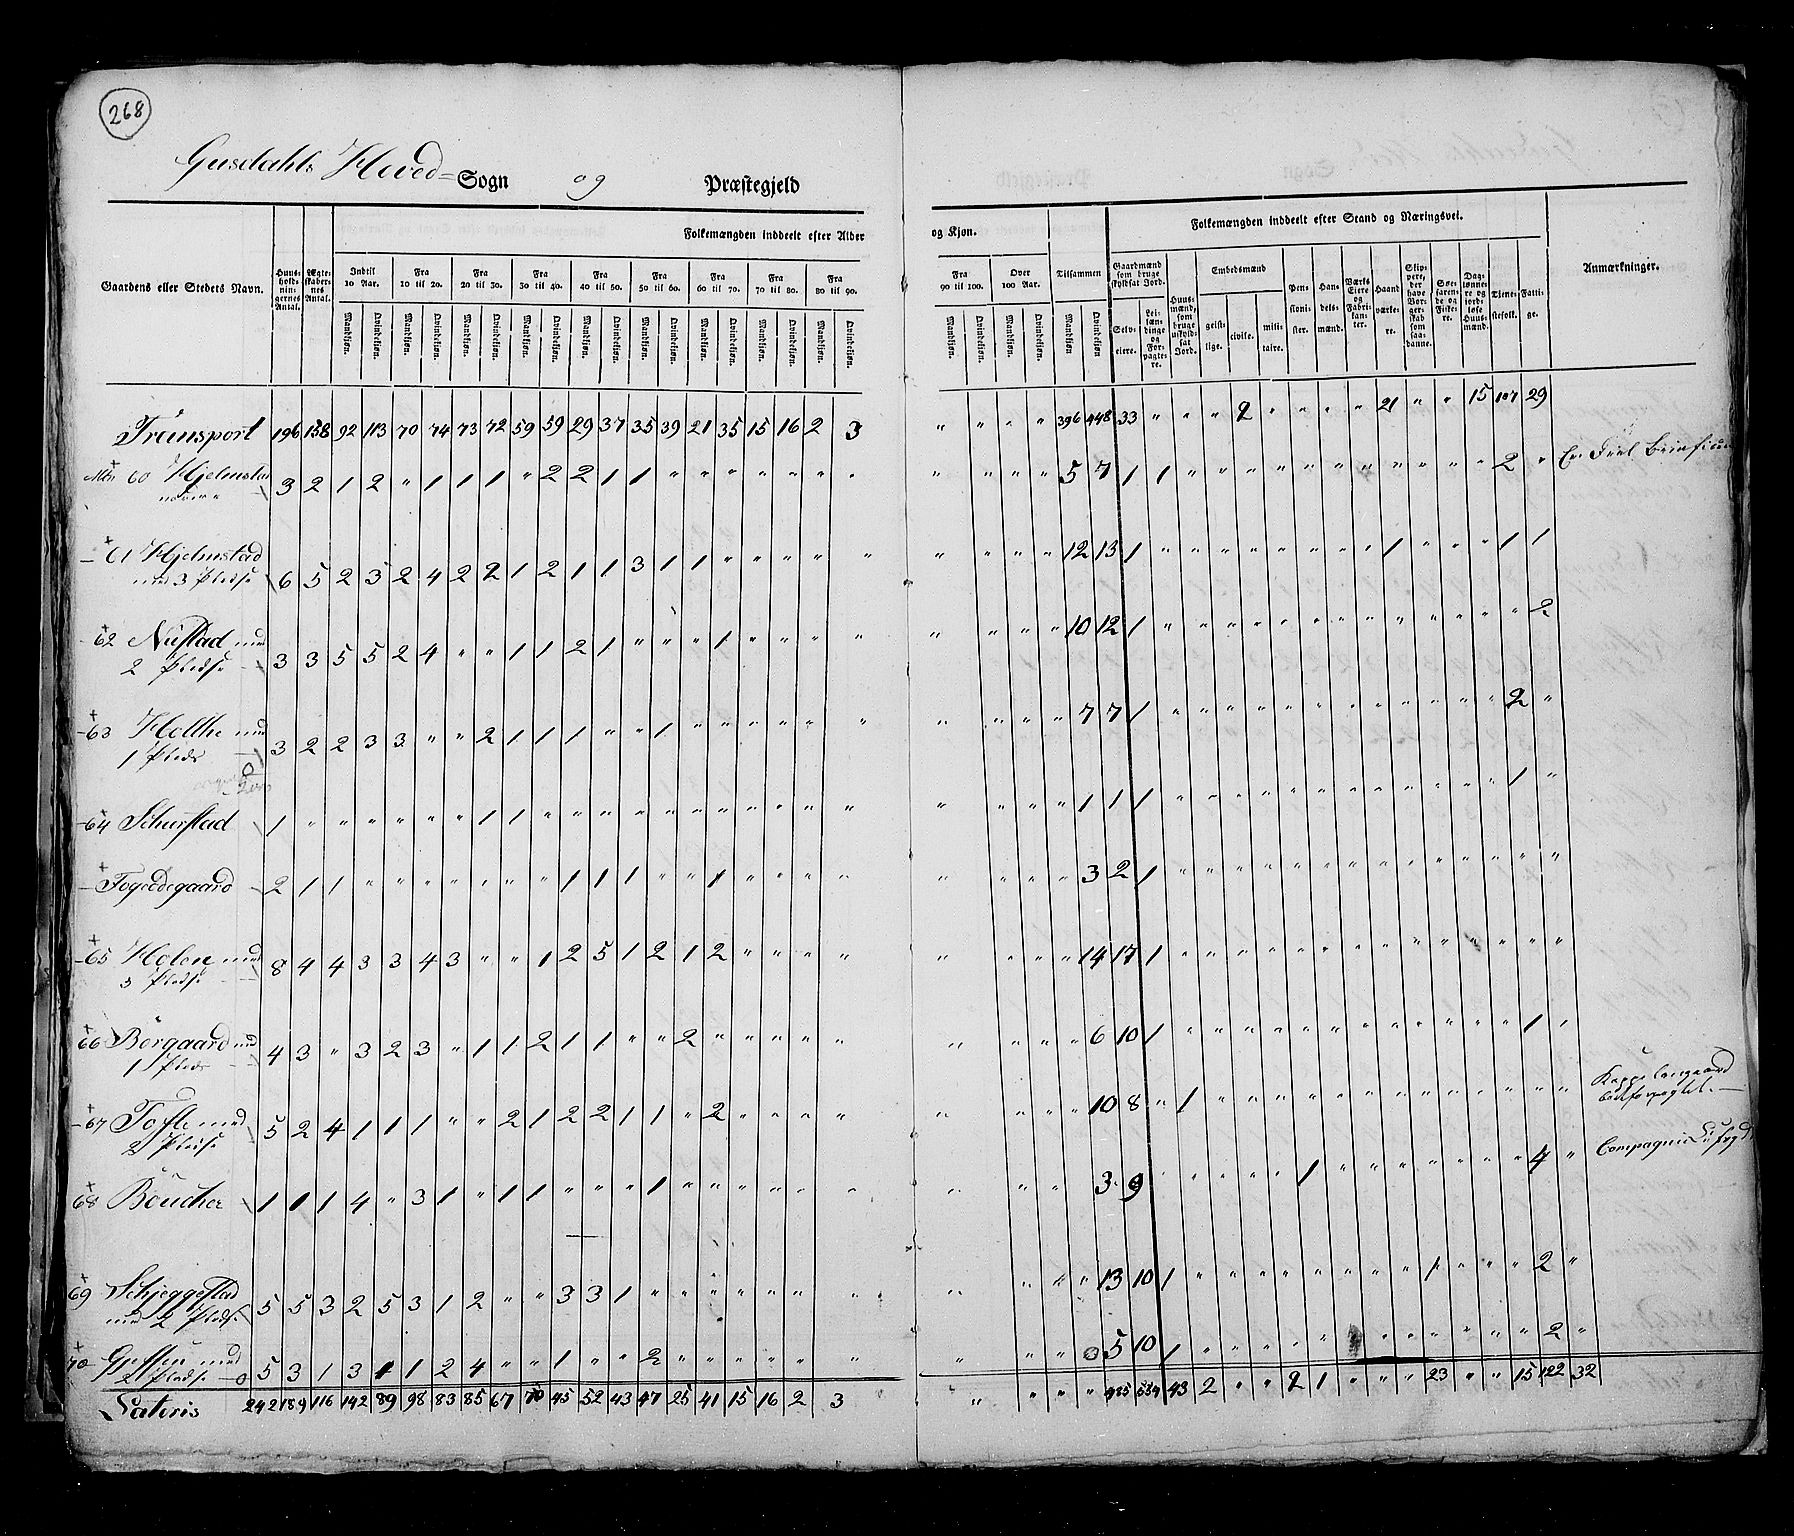 268
Gusdahls Hoved= Sogn og Præstegjeld
Folkemængden inddeelt efter Alder og Kjøn. Folkemængden inddeelt efter Stand og Næringsvei.
Gaardens eller Stedets Navn. Huusholdningernes Antal. Ægteskabernes Antal. Indtil 10 Aar. Fra 10 til 20. Fra 20 til 30. Fra 30 til 40. Fra 40 til 50. Fra 50 til 60. Fra 60 til 70. Fra 70 til 80. Fra 80 til 90. Fra 90 til 100. Over 100 Aar. Tilsammen Gaardmænd som bruge skyldsat Jord. Huusmænd, som bruge uskyldsat Jord. Embedsmænd Pensionister. Handelsmænd. Værks Eiere og Fabrikanter. Haandværkere. Skippere, der have Borgerskab som saadanne. Søefarende og Fiskere. Daglønnere og jordløse Huusmænd. Tjenestefolk. Fattige. Anmærkninger.
Mandkjøn. Qvindekjøn. Mandkjøn. Qvindekjøn. Mandkjøn. Qvindekjøn. Mandkjøn. Qvindekjøn. Mandkjøn. Qvindekjøn. Mandkjøn. Qvindekjøn. Mandkjøn. Qvindekjøn. Mandkjøn. Qvindekjøn. Mandkjøn. Qvindekjøn. Mandkjøn. Qvindekjøn. Mandkjøn. Qvindekjøn. Mandkjøn Qvindekjøn Selveiere. Leilændinge og Forpagtere. geistlige. civile. militaire.
Transport 196 158 92 113 70 74 73 72 59 59 29 37 35 39 21 35 15 16 2 3 " " " " 396 448 33 " " " 2 " " " " 21 " " 15 107 29
60 Hjelmstad 3 2 1 2 " 1 1 1 " 2 2 1 1 " " " " " " " " " " " 5 7 1 1 " " " " " " " " " " " 2 "
61 Hjelmstad 6 5 2 3 2 4 2 2 1 2 1 1 3 1 1 " " " " " " " " " 12 13 1 " " " " " " " " 1 " " " 1 1
med 3 Pladse
62 Nustad med 3 3 5 5 2 4 " " 1 1 2 1 " " " 1 " " " " " " " " 10 12 1 " " " " " " " " " " " " " 2
2 Pladse
63 Holthe med 3 2 2 3 3 " " 2 1 1 1 " " 1 " " " " " " " " " " 7 7 1 " " " " " " " " " " " " 2 "
1 Plads
64 Schurstad 1 " " " " " " 1 1 " " " " " " " " " " " " " " " 1 1 1 " " " " " " " " " " " " 1 "
Fogedegaard 2 1 1 " " " " " " " 1 1 1 " " 1 " " " " " " " " 3 2 1 " " " " " " " " " " " " " "
65 Holen med 8 4 4 3 3 4 3 " " 1 2 5 1 2 1 2 " " " " " " " " 14 17 1 " " " " " " " " " " " " " "
3 Pladse
66 Börgaard med 4 3 " 3 2 3 " 1 1 2 1 1 " " 2 " " " " " " " " " 6 10 1 " " " " " " " " " " " " 1 "
1 Plads
67 Tofte med 5 2 4 1 1 1 " " 2 1 2 2 1 1 " 2 " " " " " " " " 10 8 " 1 " " " " " " " " " " " " "
2 Pladse
68 Böucher 1 1 1 4 " 3 1 " 1 1 " " " 1 " " " " " " " " " 3 9 " " " 1 " " " " " " " 4 " Compagnie
69 Schjeggestad 5 5 3 2 5 3 1 2 " " 3 3 1 " " " " " " " " " " 13 10 1 " " " " " " " " 1 " " " 2 "
med 2 Pladse
70 med 5 3 1 3 1 1 2 4 " " 1 " " 2 " " " " " " " " " 5 10 1 " " " " " " " " " " " 2 "
Pladse
Lateris 242 189 116 142 89 98 83 85 67 70 45 52 43 47 25 41 15 16 2 3 " " " " 485 554 43 2 " " 2 1 " " " 23 " " 15 122 32